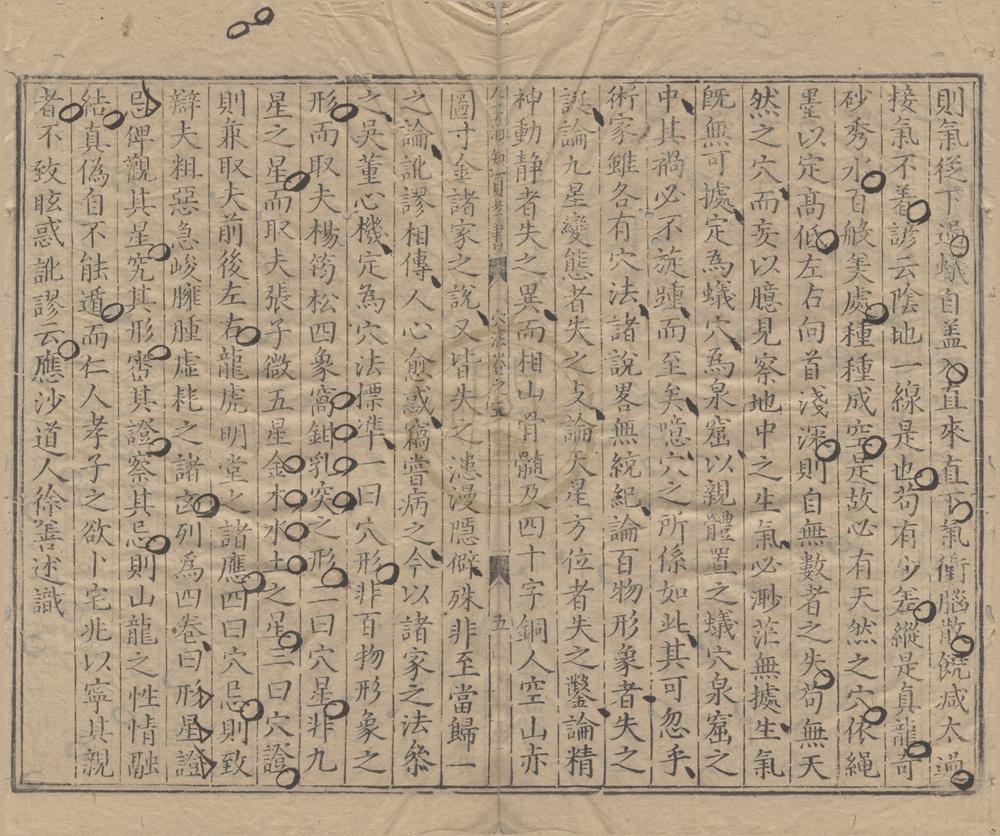 則氣従下過蟻自盖入直來直下氣衝腦散饒減太過
接氣不着諺云隂地一線是也苟有少差縱是真龍奇
砂秀水百般美處種種成空是故必有天然之穴依繩
墨以定髙低左右向首淺深則自無數者之失苟無天
然之穴而妄以臆見察地中之生氣必渺茫無據生氣
旣無可據定為蟻穴為泉窟以親體置之蟻穴泉窟之
中其禍必不旋踵而至矣噫穴之所係如此其可忽乎
術家雖各有穴法諸說畧無統紀論百物形象者失之
誕論九星變態者失之支論天星方位者失之鑿論精
神動静者失之異而相山骨髓及四十字銅人空山赤
人子須知資孝書 穴法卷之 五
圖寸金諸家之說又皆失之漶漫隠僻殊非至當歸一
之論訛謬相傳人心愈惑竊嘗病之今以諸家之法叅
之吳董心機定為穴法標凖一曰穴形非百物形象之
形而取夫楊筠松四象窩鉗乳突之形二曰穴星非九
星之星而取夫張子微五星金木水土之星三曰穴證
則兼取夫前後左右龍虎明堂之諸應四曰穴忌則致
辯夫粗惡急峻臃腫虛耗之諸凶列為四卷曰形星證
忌俾觀其星究其形審其證察其忌則山龍之性情融
結真偽自不能遁而仁人孝子之欲卜宅兆以寧其親
者不致眩惑訛謬云應沙道人徐善述識